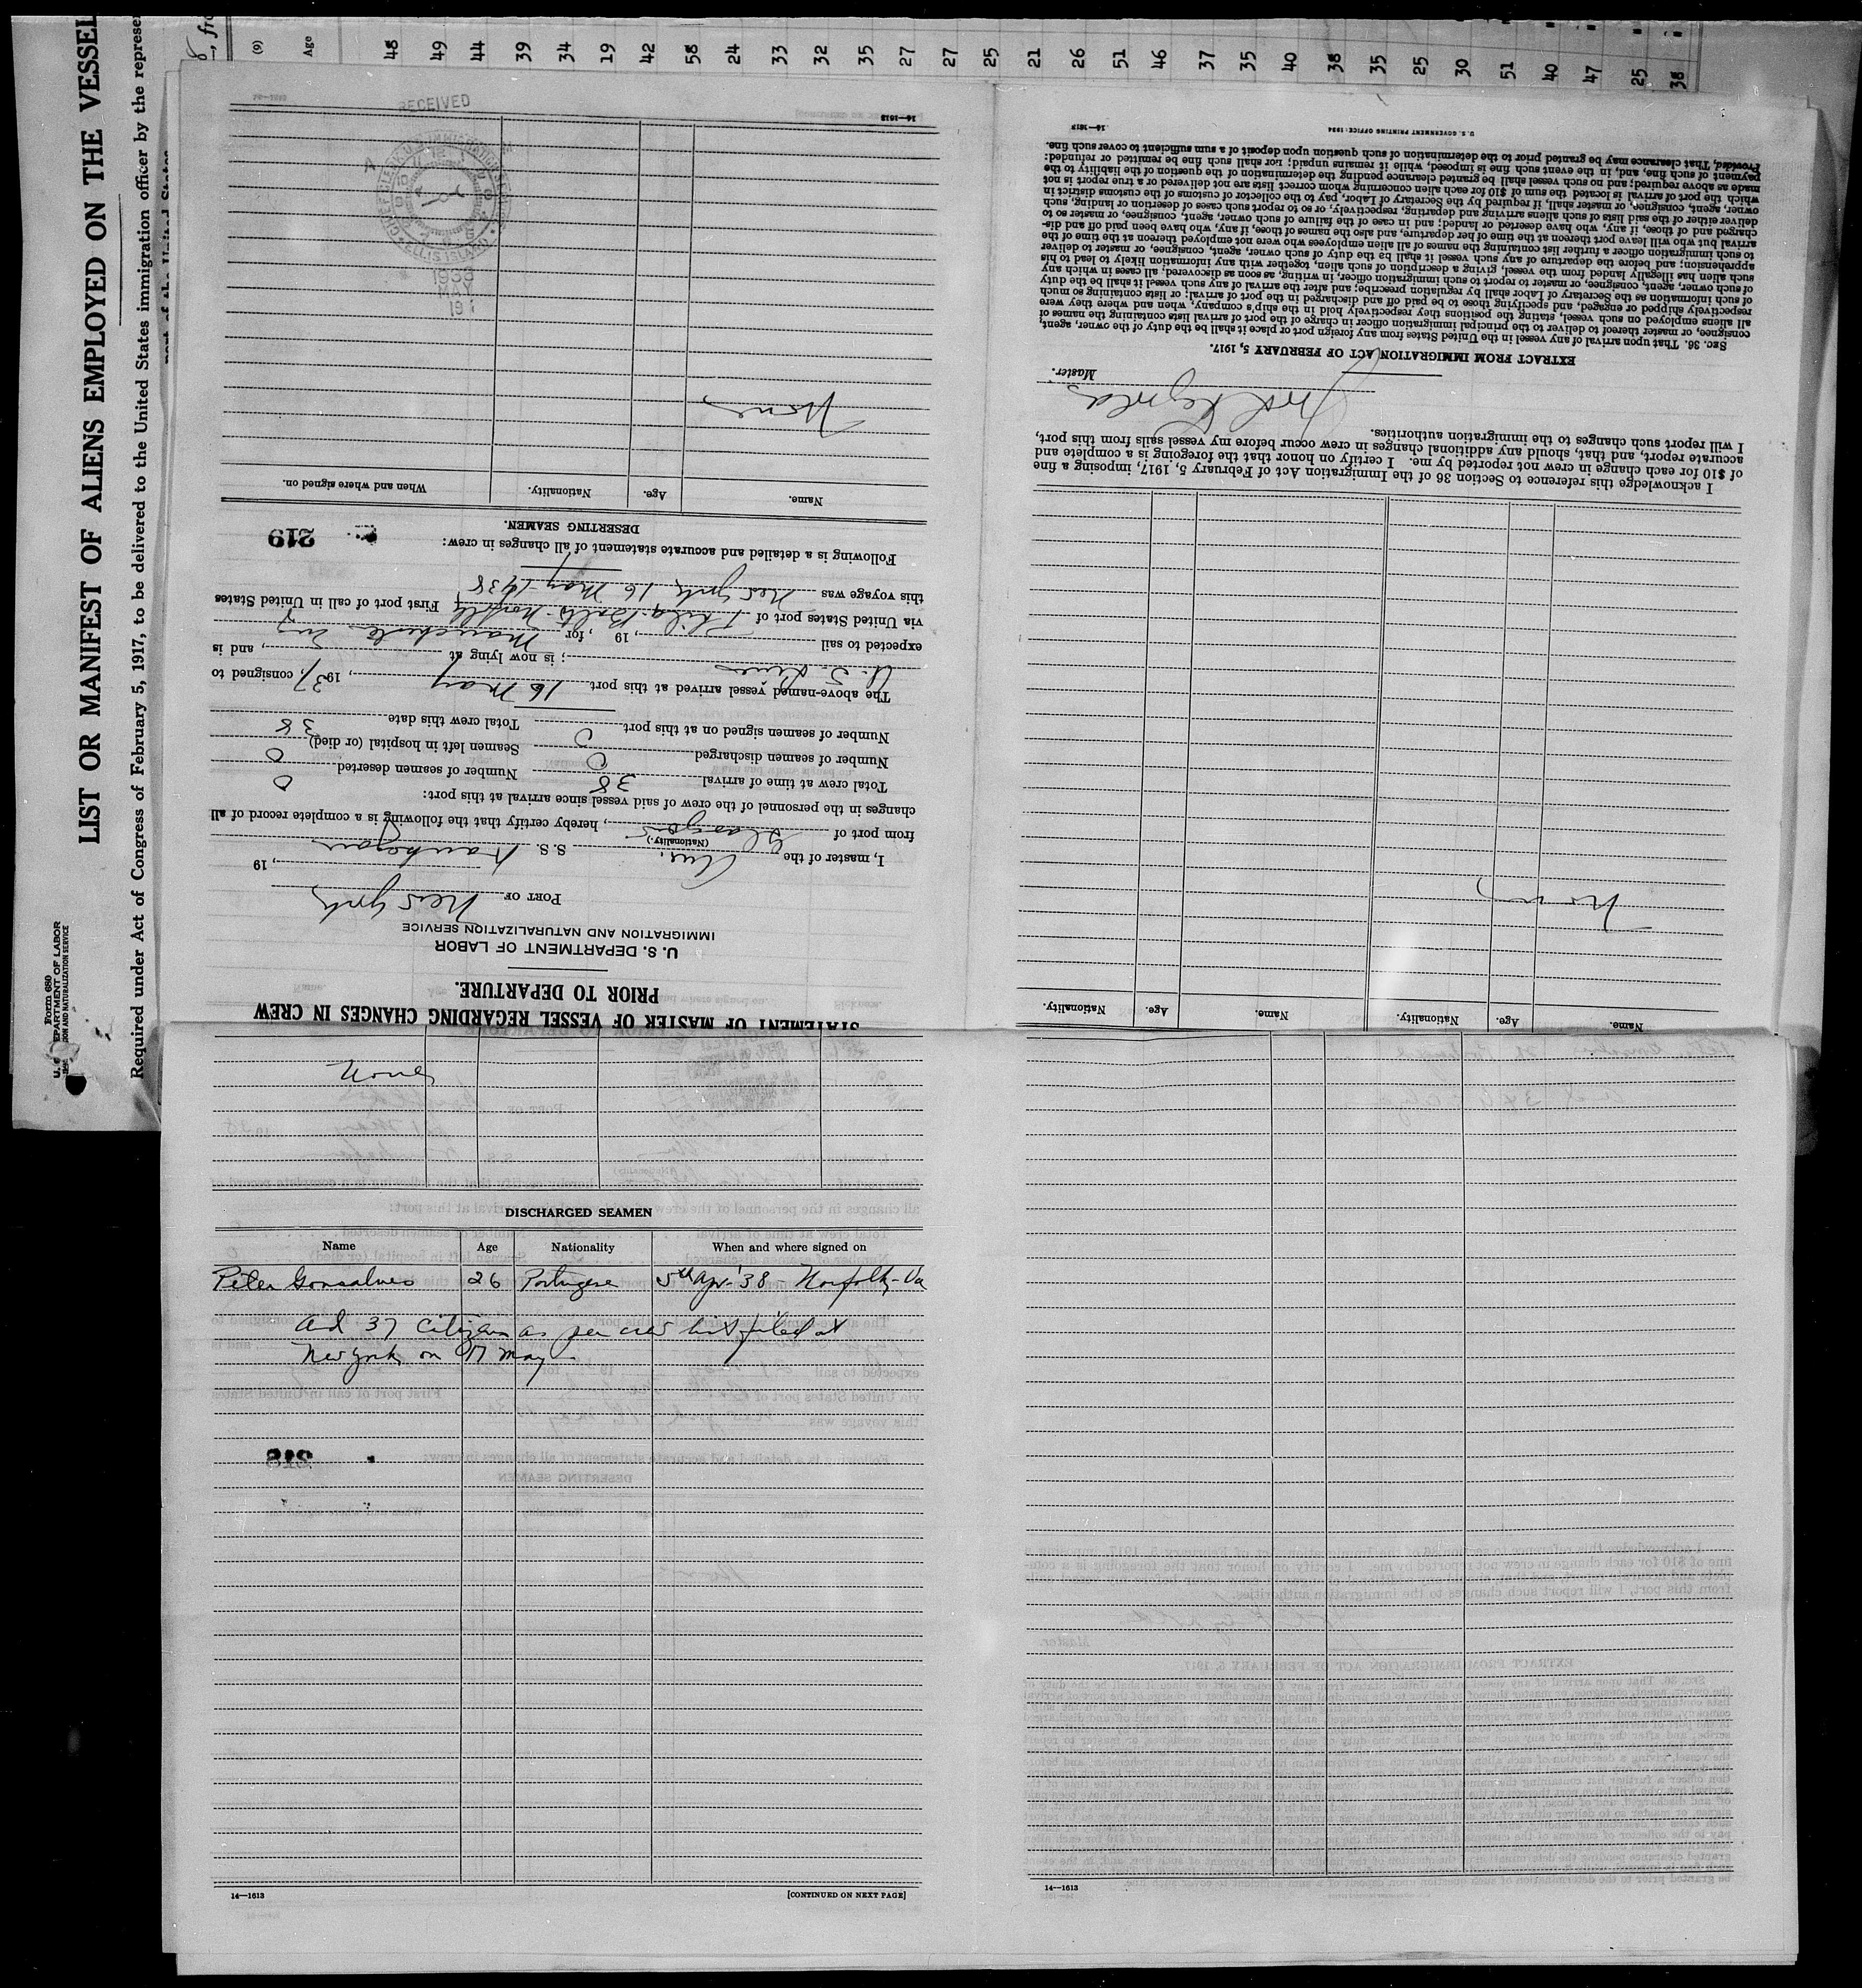 Form 680
U. S. DEPARTMENT OF LABOR
LIST OR MANIFEST OF ALIENS EMPLOYED ON THE VESSEL
Required under Act of Congress of February 5, 1917, to be delivered to the United States immigration officer by the represen
(9)
Age
48
49
44
39
34
19
42
58
24
33
32
35
27
27
25
21
26
51
46
37
35
40
38
35
25
30
51
40
47
25
36
STATEMENT OF MASTER OF VESSEL REGARDING CHANGES IN CREW
PRIOR TO DEPARTURE.
U. S. DEPARTMENT OF LABOR
IMMIGRATION AND NATURALIZATION SERVICE
PORT OF New York
, 19
I, master of the Am. S. S.
(Nationality.)
from port of Glasgow, hereby certify that the following is a complete record of all
changes in the personnel of the crew of said vessel since arrival at this port:
Total crew at time of arrival 38 Number of seamen deserted 0
Number of seamen discharged 0 Seamen left in hospital (or died) 0
Number of seamen signed on at this port 0 Total crew this date 38
The above-named vessel arrived at this port 16 May, 1937, consigned to
U. S. Lines; is now lying at , and is
expected to sail , 19 , for Manchester Eng
via United States port of Phila Balto Norfolk First port of call in United States
this voyage was New York 16 May 1938
Following is a detailed and accurate statement of all changes in crew:
219
DESERTING SEAMEN.
Name. Age. Nationality. When and where signed on.
None
RECEIVED
ELLIS ISLAND
1938
MAY
14—1613
Name. Age. Nationality. Name. Age. Nationality.
None
I acknowledge this reference to Section 36 of the Immigration Act of February 5, 1917, imposing a fine
of $10 for each change in crew not reported by me. I certify on honor that the foregoing is a complete and
accurate report, and that, should any additional changes in crew occur before my vessel sails from this port,
I will report such changes to the immigration authorities.
Master.
EXTRACT FROM IMMIGRATION ACT OF FEBRUARY 5, 1917.
SEC. 36. That upon arrival of any vessel in the United States from any foreign port or place it shall be the duty of the owner, agent,
consignee, or master thereof to deliver to the principal immigration officer in charge of the port of arrival lists containing the names of
all aliens employed on such vessel, stating the positions they respectively hold in the ship's company, when and where they were
respectively shipped or engaged, and specifying those to be paid off and discharged in the port of arrival; or lists containing so much
of such information as the Secretary of Labor shall by regulation prescribe; and after the arrival of any such vessel it shall be the duty
of such owner, agent, consignee, or master to report to such immigration officer, in writing, as soon as discovered, all cases in which any
such alien has illegally landed from the vessel, giving a description of such alien, together with any information likely to lead to his
apprehension; and before the departure of any such vessel it shall be the duty of such owner, agent, consignee, or master to deliver
to such immigration officer a further list containing the names of all alien employees who were not employed thereon at the time of the
arrival but who will leave port thereon at the time of her departure, and also the names of those, if any, who have been paid off and dis-
charged and of those, if any, who have deserted or landed; and in case of the failure of such owner, agent, consignee, or master so to
deliver either of the said lists of such aliens arriving and departing, respectively, or so to report such cases of desertion or landing, such
owner, agent, consignee, or master shall, if required by the Secretary of Labor, pay to the collector of customs of the customs district in
which the port of arrival is located the sum of $10 for each alien concerning whom correct lists are not delivered or a true report is not
made as above required; and no such vessel shall be granted clearance pending the determination of the question of the liability to the
payment of such fine, and, in the event such fine is imposed, while it remains unpaid; nor shall such fine be remitted or refunded:
Provided, That clearance may be granted prior to the determination of such question upon deposit of a sum sufficient to cover such fine.
14—1613
U. S. GOVERNMENT PRINTING OFFICE: 1934
None
DISCHARGED SEAMEN
Name Age Nationality When and where signed on
Peter Gonsalves 26 Portugese 5th Apr '38 - Norfolk - Va
and 37 citizens as per crew list filed at
New York on 17 May -
14—1613
[CONTINUED ON NEXT PAGE]
14—1613